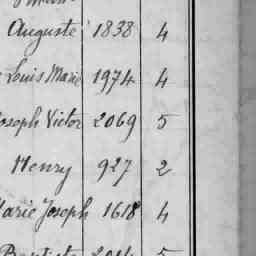 Auguste 1838 4
Louis Marie 1974 4
Joseph Victor 2069 5
Henry 927 2
Marie Joseph 1618 4
Baptiste 2014 5